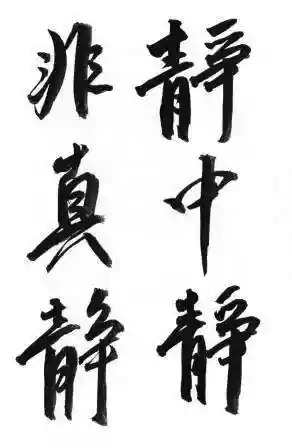 靜中靜
非真靜